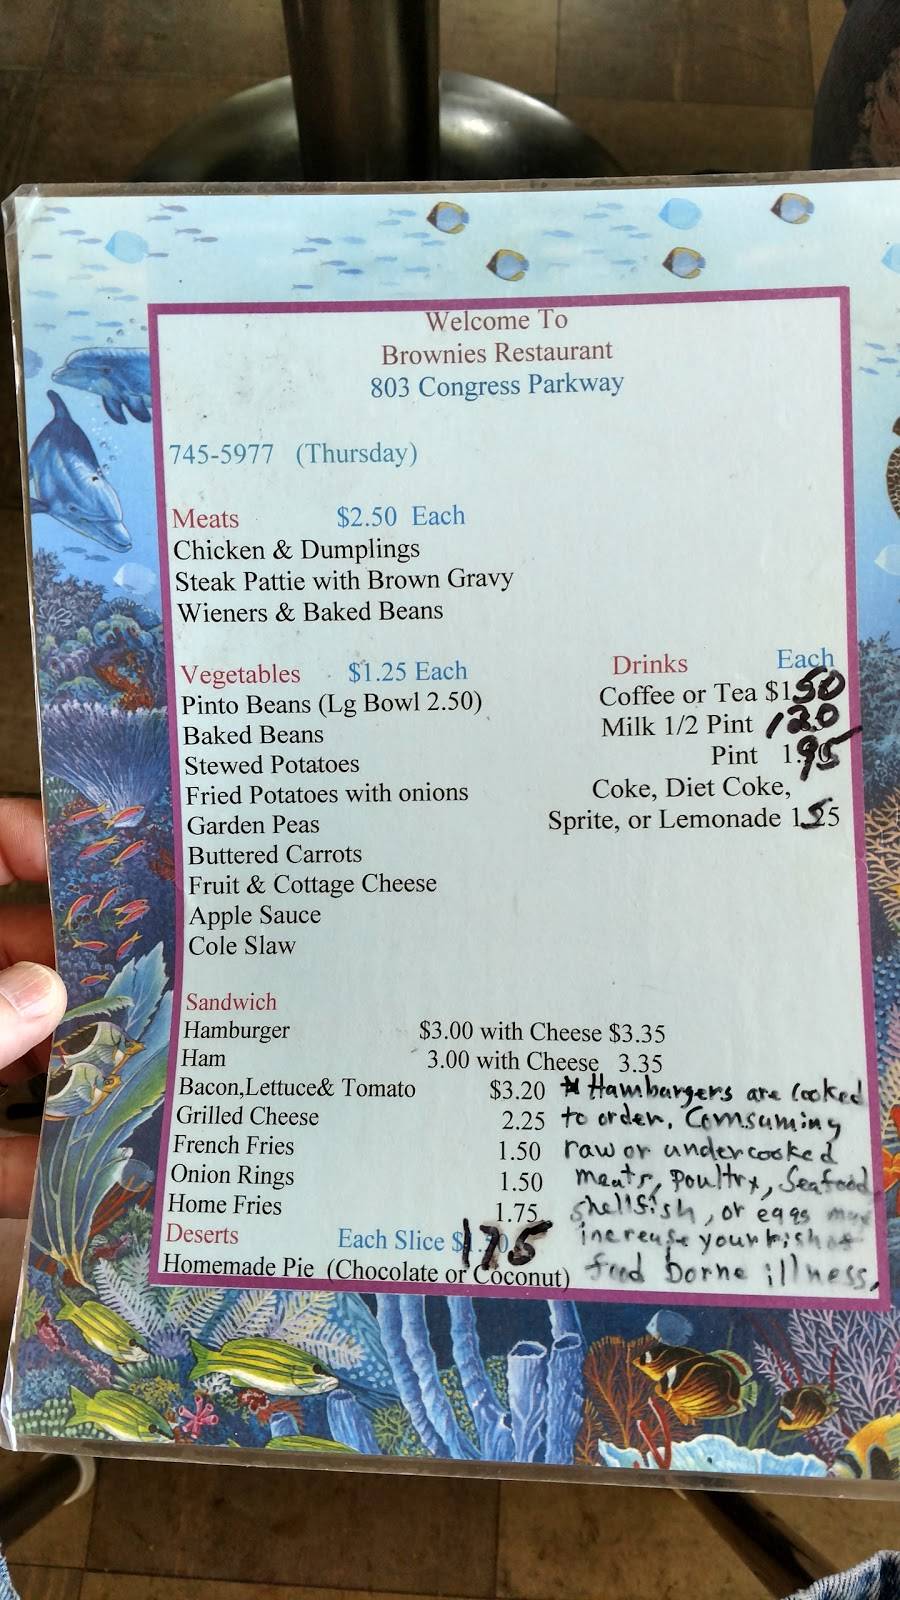 Welcome To
Brownies Restaurant
803 Congress Parkway
745-5977 (Thursday)
Meats $2.50 Each
Chicken & Dumplings
Steak Pattie with Brown Gravy
Wieners & Baked Beans
Vegetables $1.25 Each
Pinto Beans (Lg Bowl 2.50)
Baked Beans
Stewed Potatoes
Fried Potatoes with onions
Garden Peas
Buttered Carrots
Fruit & Cottage Cheese
Apple Sauce
Cole Slaw
Drinks Each
Coffee or Tea $1.50
Milk 1/2 Pint 1.20
Pint 1.95
Coke, Diet Coke,
Sprite, or Lemonade
Sandwich
Hamburger $3.00 with Cheese $3.35
Ham 3.00 with Cheese 3.35
Bacon,Lettuce& Tomato $3.20
Grilled Cheese 2.25
French Fries 1.50
Onion Rings 1.50
Home Fries 1.75
Deserts Each Slice $1.75
Homemade Pie (Chocolate or Coconut)
* Hamburgers are cooked
to order. Comsuming
raw or undercooked
meats, poultry, Seafood
shellfish, or eggs may
increase your
food borne illness.